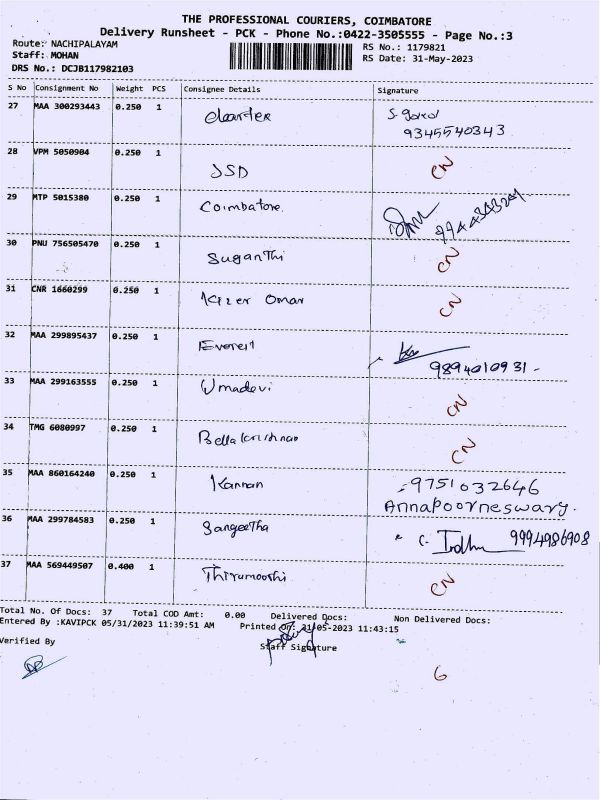 THE PROFESSIONAL COURIERS, COIMBATORE
Delivery Runsheet - PCK - Phone No.:0422-3505555 - Page No.:3
Route: NACHIPALAYAM RS No.: 1179821
Staff: MOHAN RS Date: 31-May-2023
DRS No.: DCJB117982103
S No Consignment No Weight PCS Consignee Details Signature
27 MAA 300293443 0.250 1
9345540343
28 VPM 5050904 0.250 1 JSD CN
29 MTP 5015380 0.250 1 Coimbatore
30 PNU 756505470 0.250 1 Suganthi CN
31 CNR 1660299 0.250 1 Omar CN
32 MAA 299895437 0.250 1 Everest
9894010931 -
33 MAA 299163555 0.250 1 Umadevi CN
34 TMG 6080997 0.250 1 CN
35 MAA 860164240 0.250 1 Kannan 9751032646
Annapoorneswary.
36 MAA 299784583 0.250 1 Sangeetha C. 9994986908
37 MAA 569449507 0.400 1 Thirumoorthi CN
Total No. Of Docs: 37 Total COD Amt: 0.00 Delivered Docs: Non Delivered Docs:
Entered By :KAVIPCK 05/31/2023 11:39:51 AM Printed On: 31-05-2023 11:43:15
Verified By Staff Signature
6